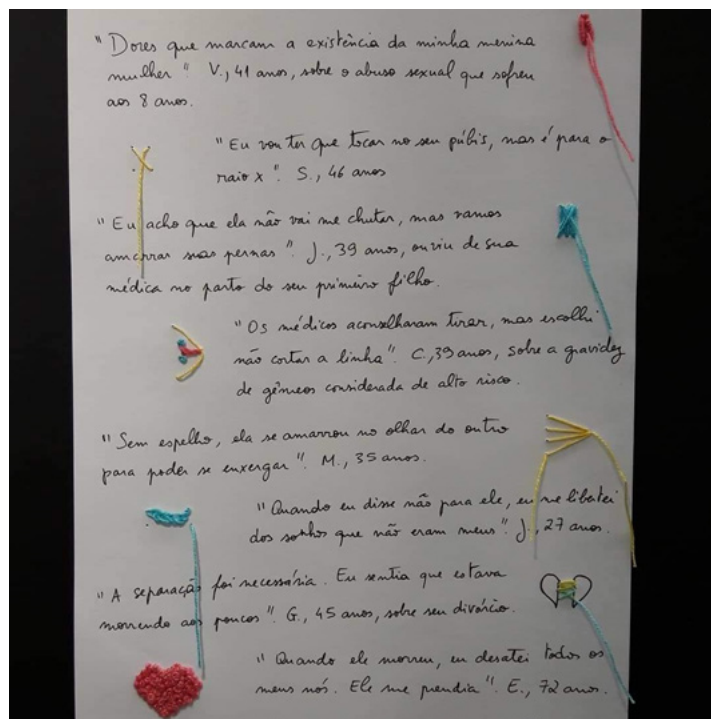 "Dores que marcam a existência da minha menina
mulher". V., 41 anos, sobre o abuso sexual que sofreu
aos 8 anos.
"Eu vou ter que tocar no seu púbis, mas é para o
raio x". S., 46 anos
"Eu acho que ela não vai me chutar, mas vamos
amarrar suas pernas". J., 39 anos, ouviu de sua
médica no parto do seu primeiro filho.
"Os médicos aconselharam tirar, mas escolhi
não cortar a linha". C., 39 anos, sobre a gravidez
de gêmeos considerada de alto risco.
"Sem espelho, ela se amarrou no olhar do outro
para poder se enxergar". M., 35 anos.
"Quando eu disse não para ele, eu me libertei
dos sonhos que não eram meus". J., 27 anos.
"A separação foi necessária. Eu sentia que estava
morrendo aos poucos". G., 45 anos, sobre seu divórcio.
"Quando ele morreu, eu desatei todos os
meus nós. Ele me prendia". E., 72 anos.